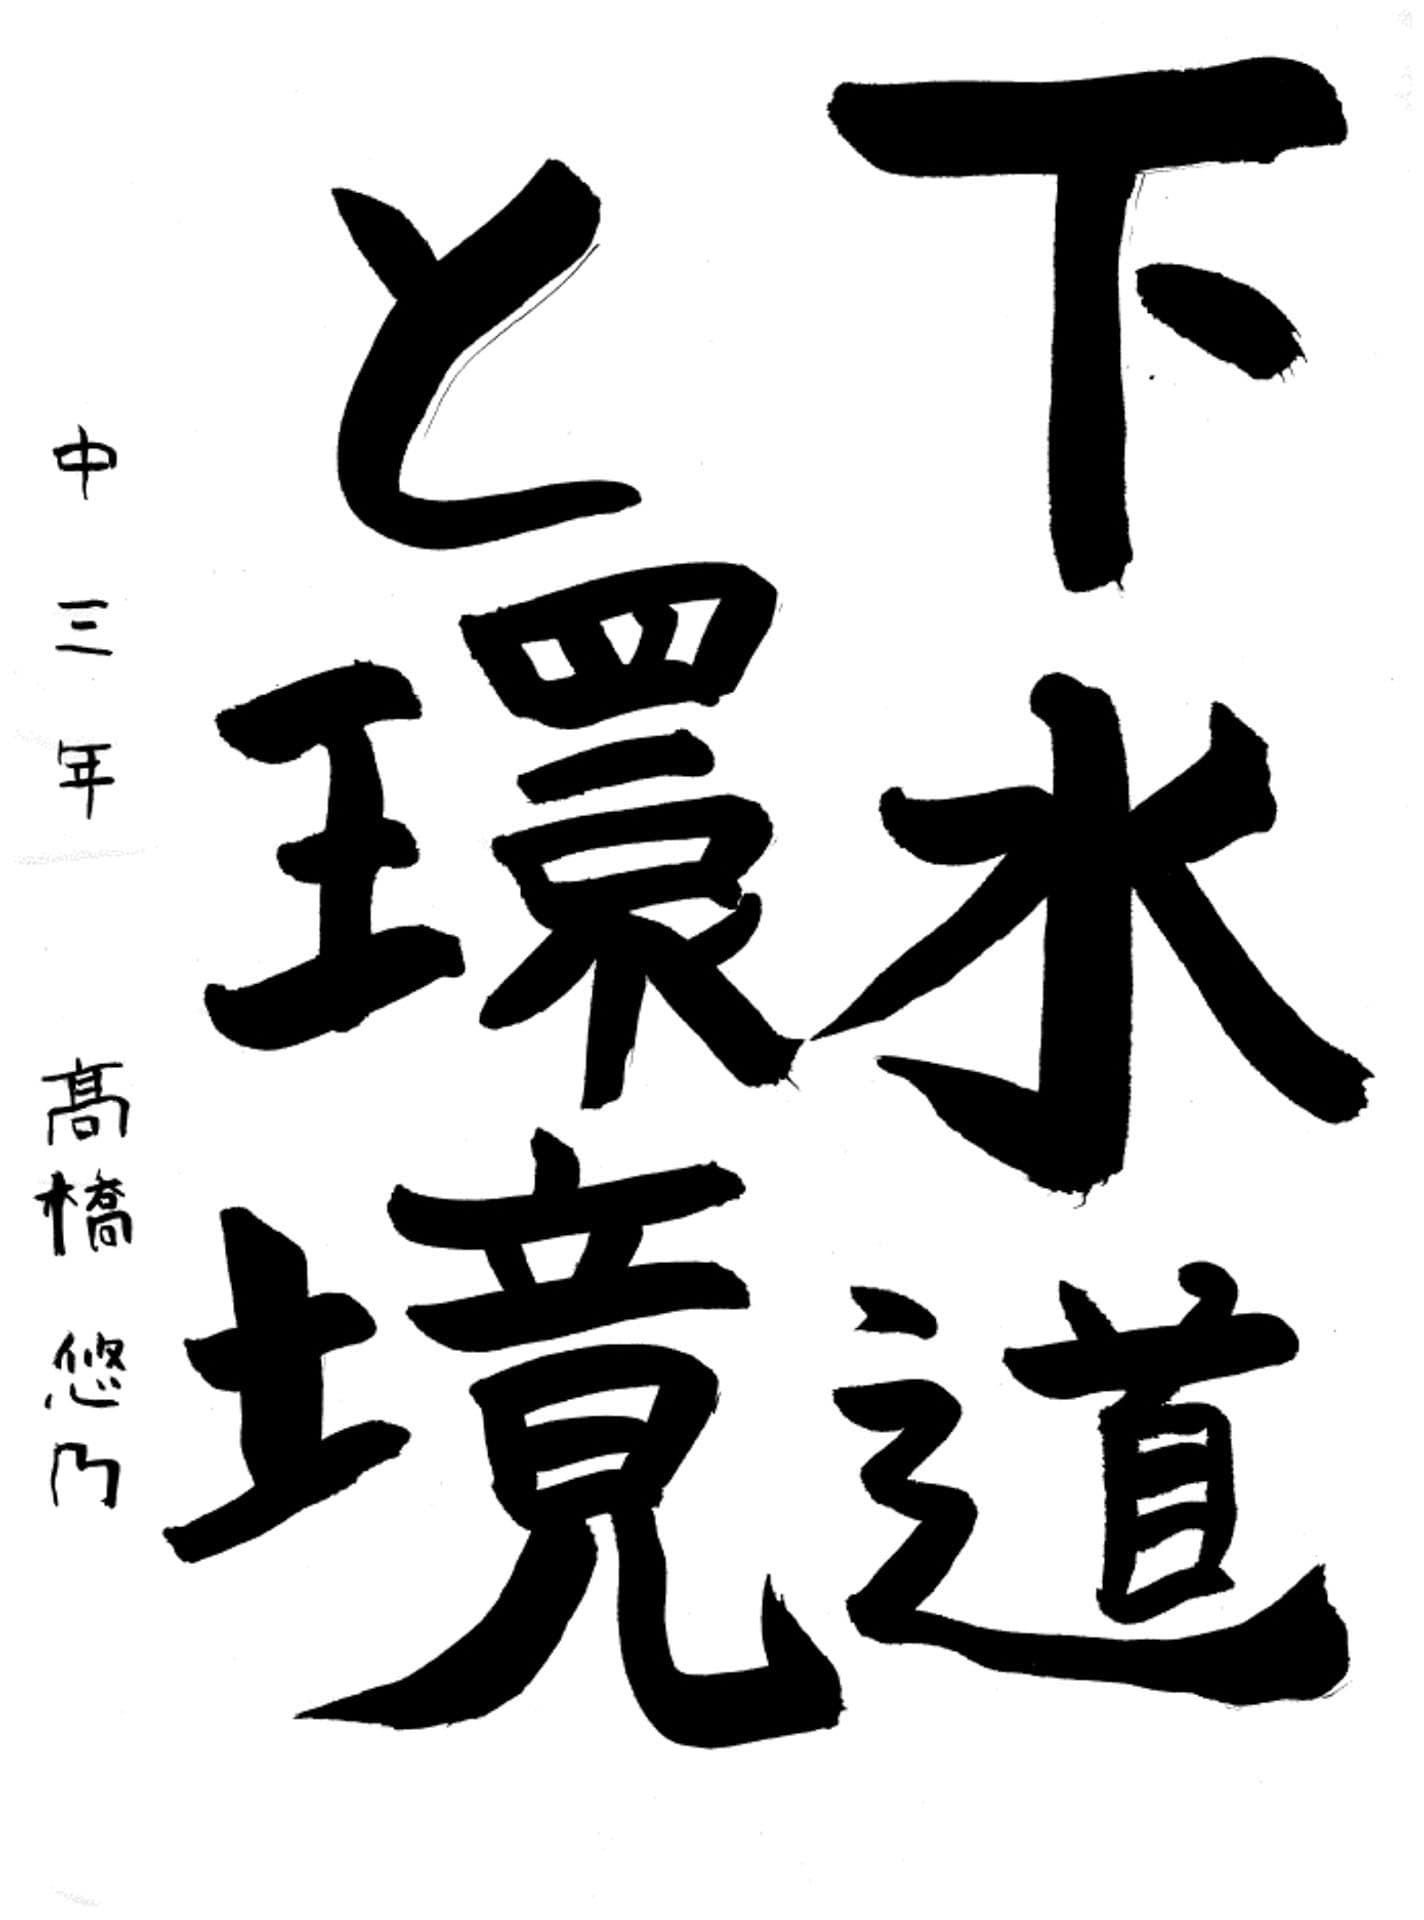 下水道
と環境
中三年 髙橋悠